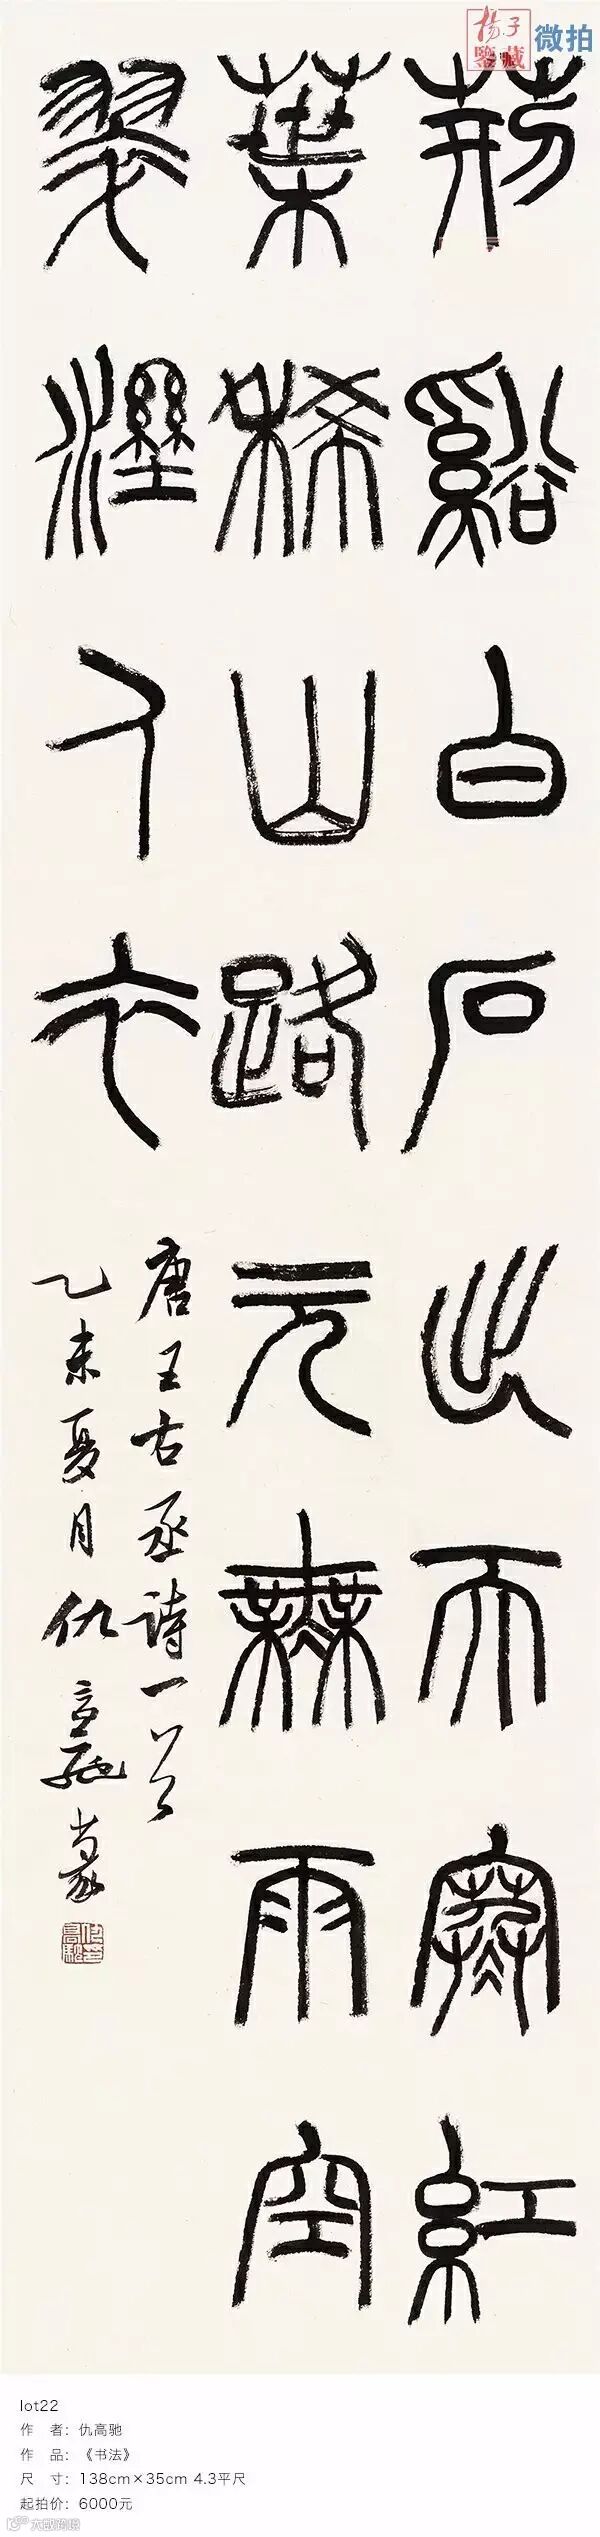 楊子
鑒藏
微拍
荆谿白石出天寒紅
葉稀山路元無雨空
翠溼人衣
唐王右丞詩一首
乙未夏月仇高馳篆
lot22
作 者：仇高驰
作 品：《书法》
尺 寸：138cm×35cm 4.3平尺
起拍价：6000元